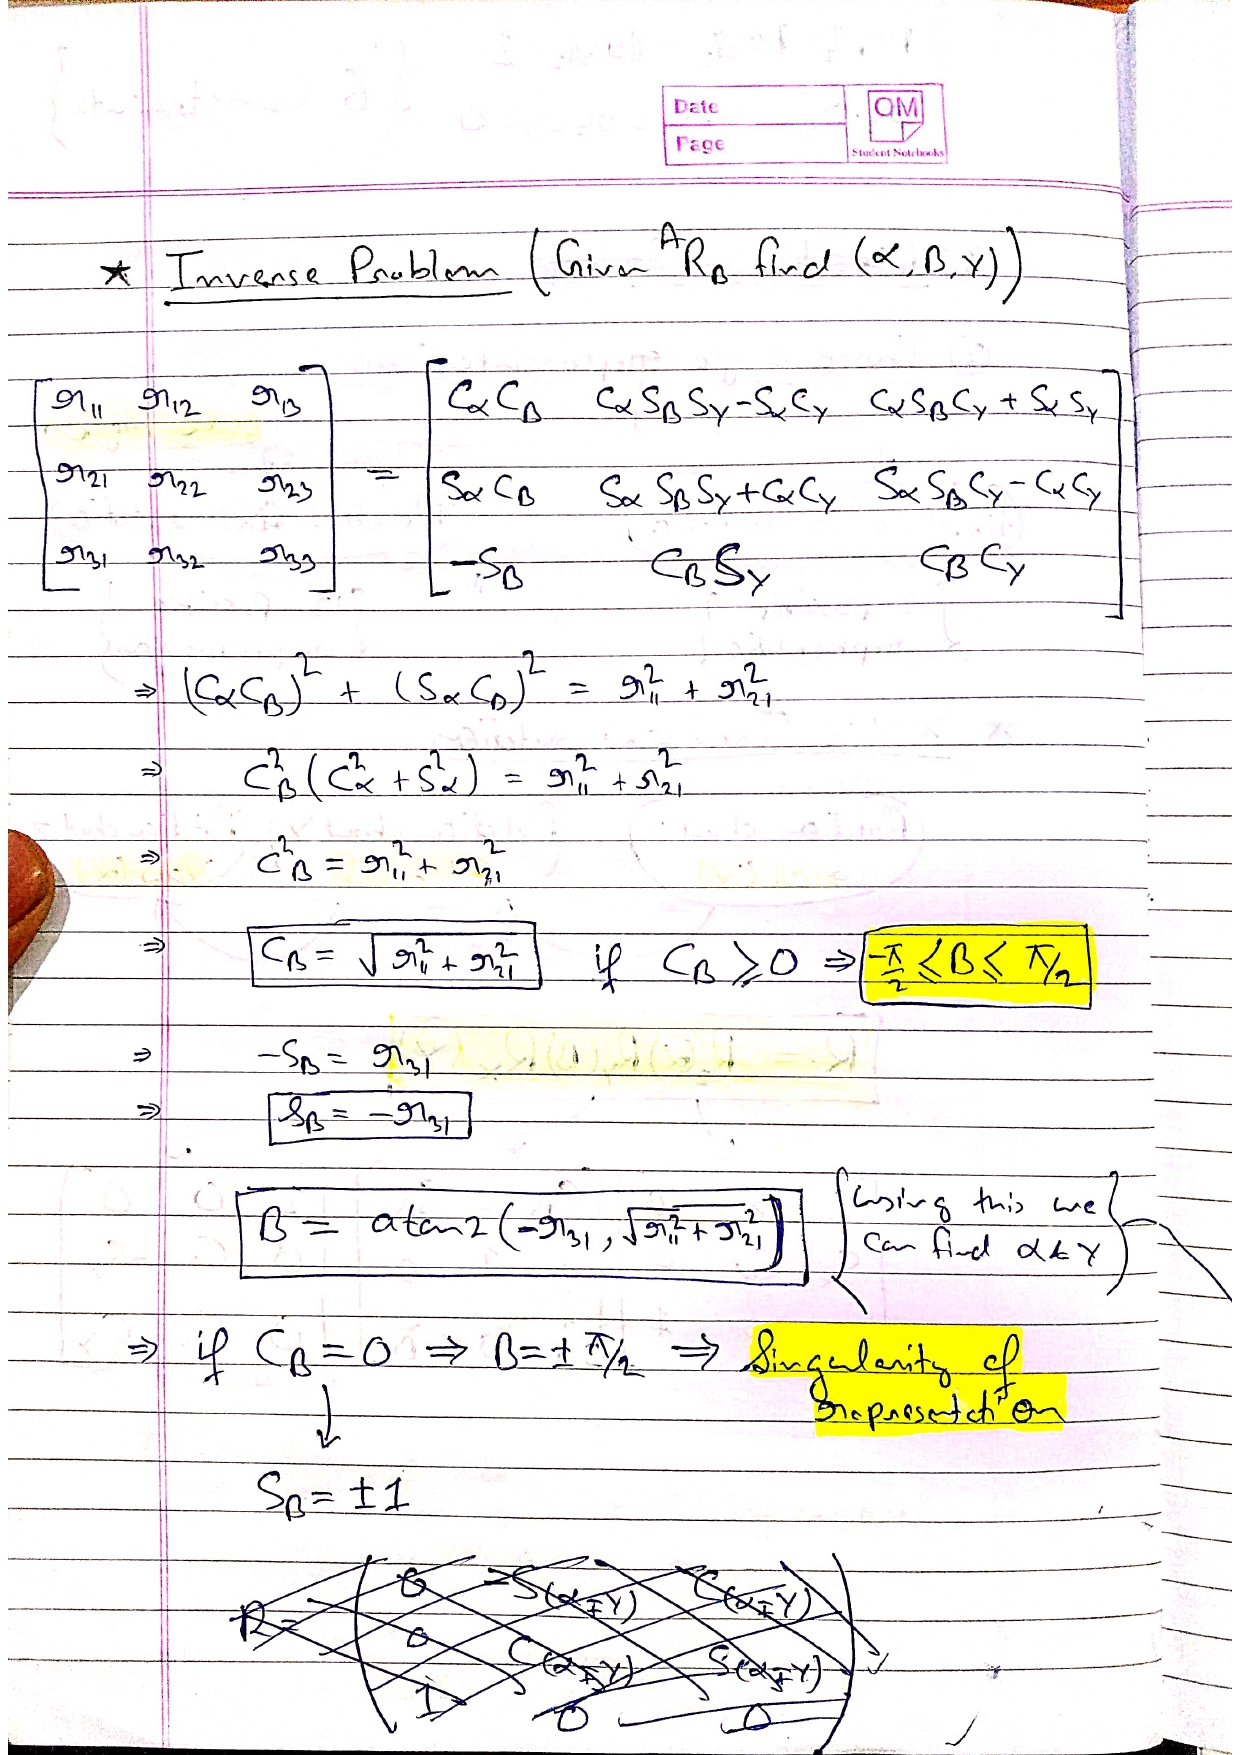 Date
Page
QM
Student Notebooks
* Inverse Problem (Given ᴬR_B find (α, β, γ))
[r₁₁ r₁₂ r₁₃] = [CαCβ CαSβSγ-SαCγ CαSβCγ + SαSγ]
[r₂₁ r₂₂ r₂₃] [SαCβ SαSβSγ+CαCγ SαSβCγ-CαCγ]
[r₃₁ r₃₂ r₃₃] [-Sβ CβSγ CβCγ]
⇒ (CαCβ)² + (SαCβ)² = r₁₁² + r₂₁²
⇒ Cβ²(Cα² + Sα²) = r₁₁² + r₂₁²
⇒ C²β = r₁₁² + r₂₁²
⇒ Cβ = √(r₁₁² + r₂₁²) if Cβ ⩾ 0 ⇒ -π/2 ⩽ β ⩽ π/2
⇒ -Sβ = r₃₁
⇒ Sβ = -r₃₁
β = atan2(-r₃₁, √(r₁₁² + r₂₁²)) {using this we
can find α & γ}
⇒ if Cβ = 0 ⇒ β = ± π/2 ⇒ Singularity of
representation
↓
Sβ = ±1
R = (0 -S(α∓γ) C(α∓γ)
0 C(α∓γ) S(α∓γ)
1 0 0)